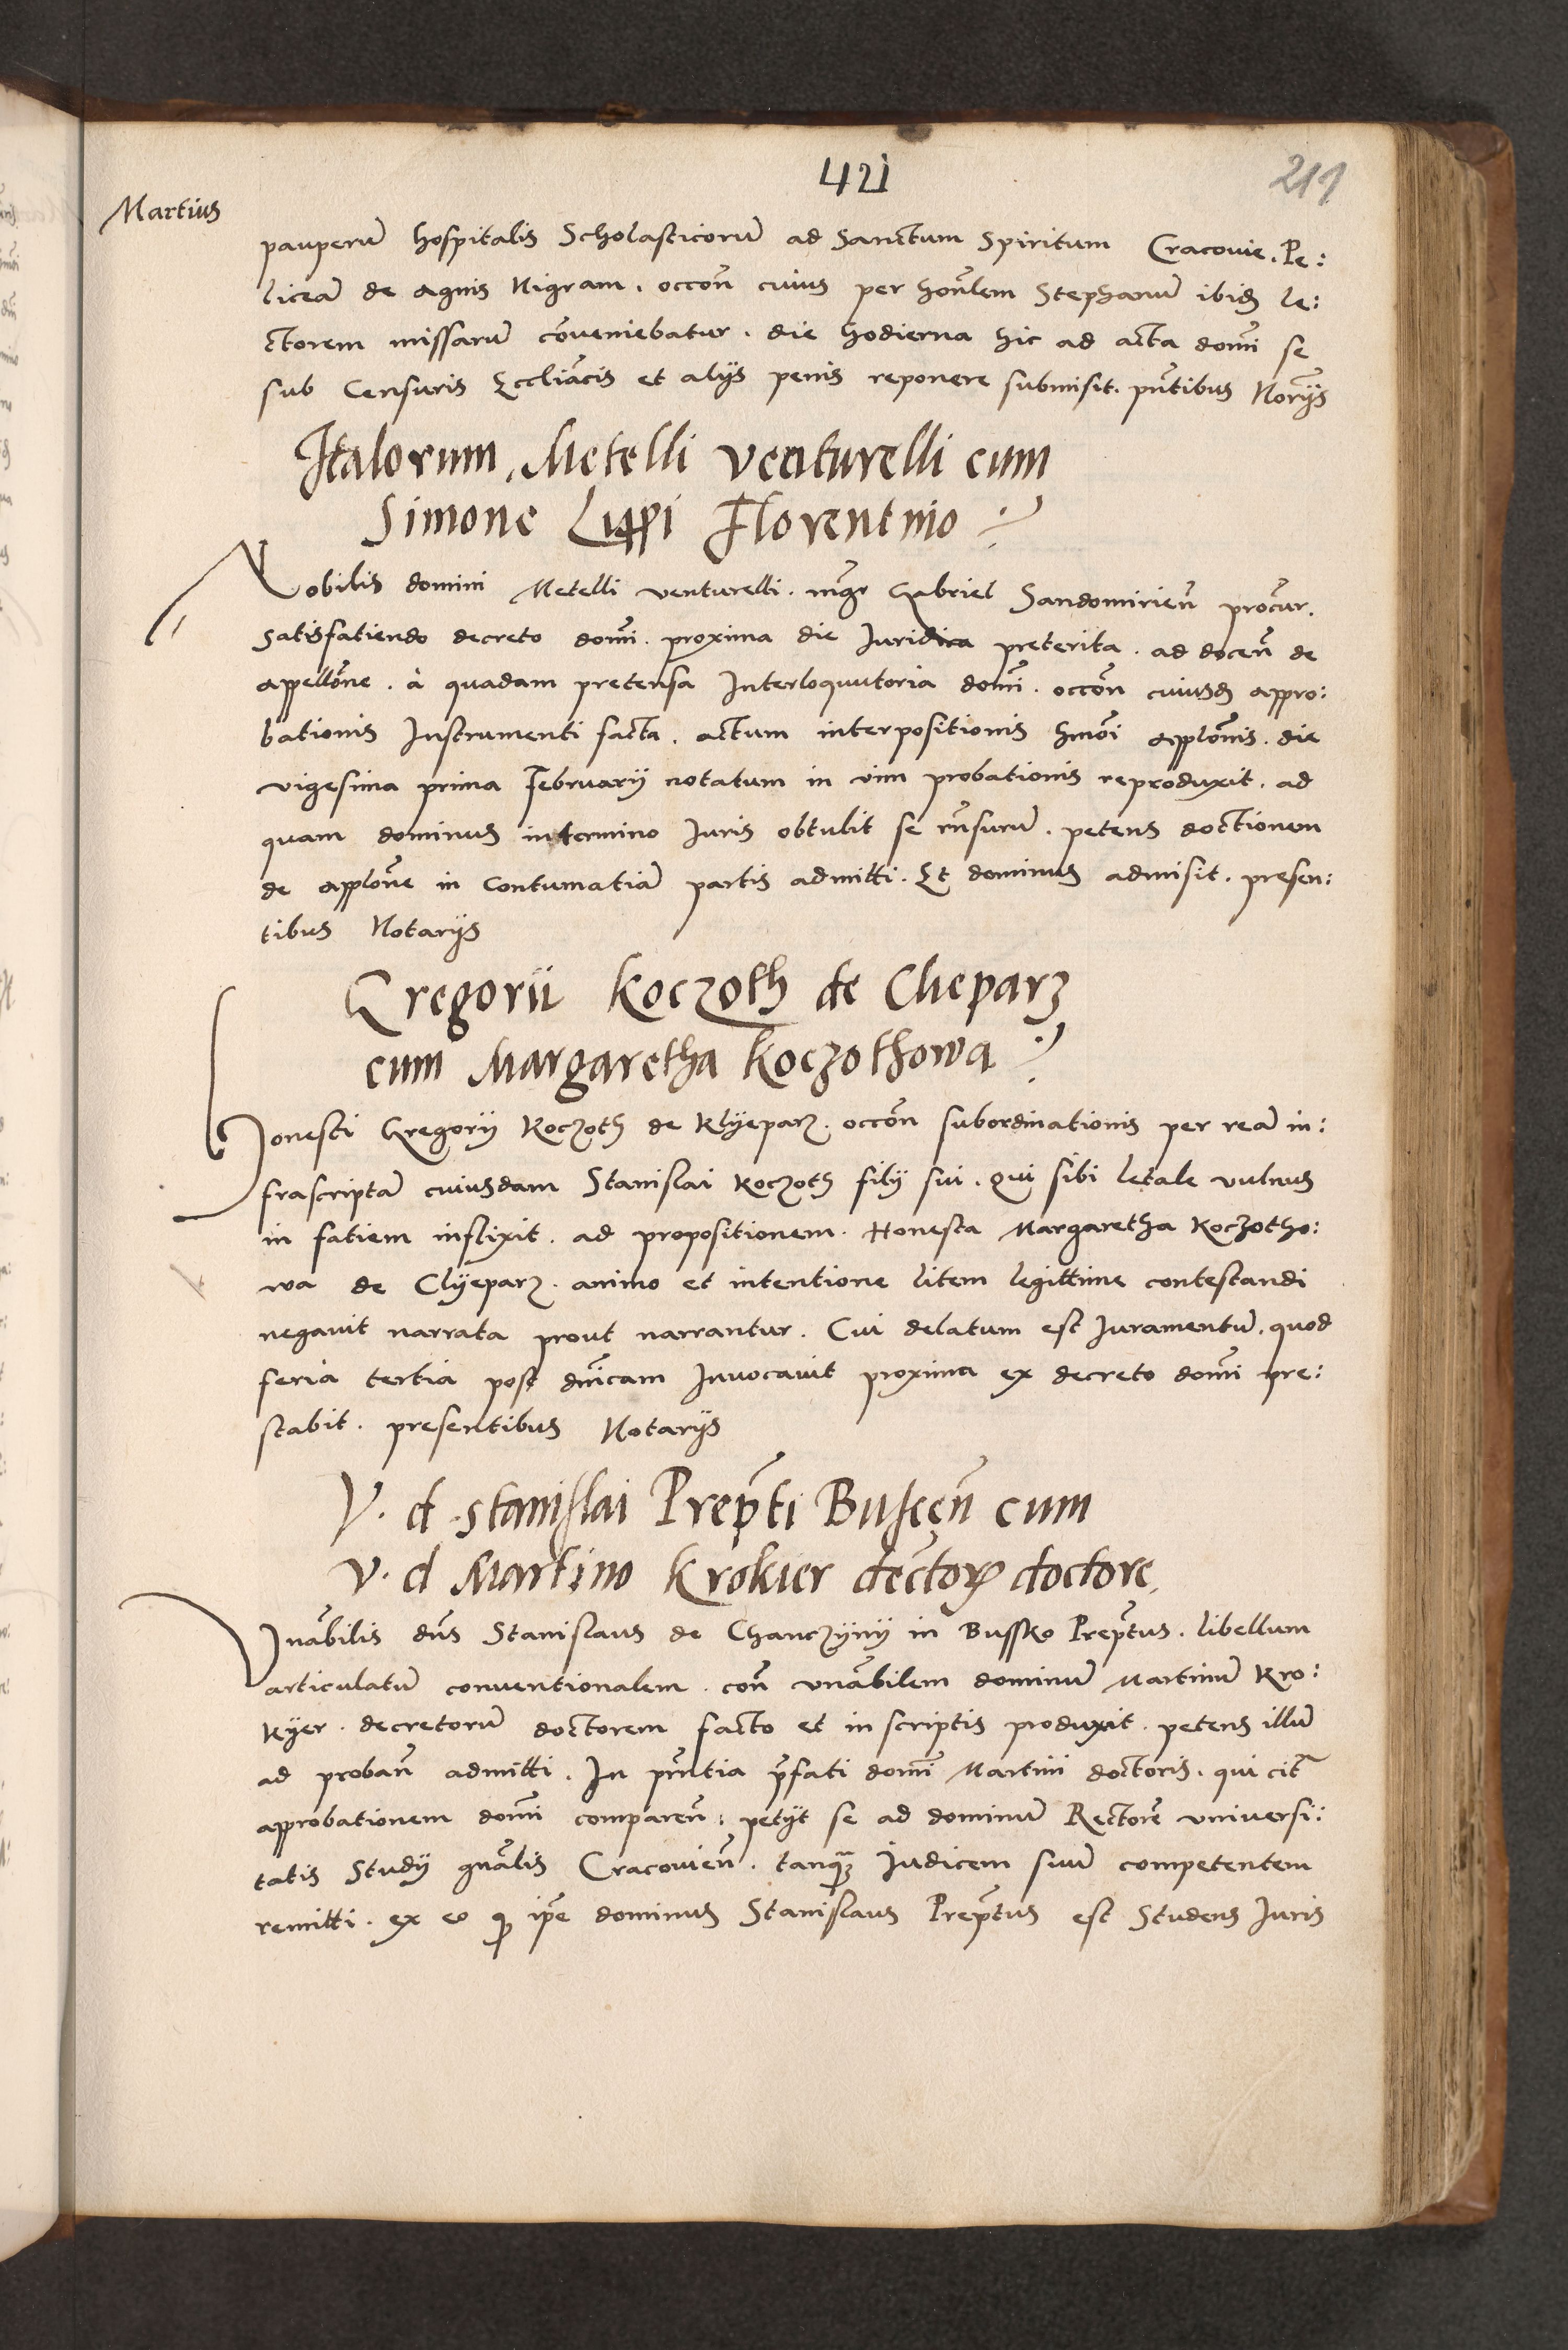 421
211
Martius
pauperu̅ hospitalis Scholasticoru̅ ad Sanctum Spiritum Cracovie. Pe:
licea̅ de agnis Nigram. occon̅ cuius per hon̅lem Stephanu̅ ibid̅ le:
ctorem missaru̅ co̅veniebatur. die hodierna hic ad acta dom̅i se
sub Censuris Eccl̅iacis et alijs penis reponere submisit. pn̅tibus Nor̅ijs
Italorum, Metelli Venturelli cum
Simone Lippi Florentino
Nobilis domini Metelli venturelli. mg̅r Gabriel Sandomirien̅ procu̅r.
Satisfatiendo decreto dom̅i. proxima die Iuridica preterita. ad docen̅ de
appello̅ne. à quadam pretensa Interloquutoria dom̅i. occo̅n cuiusd̅ appro:
bationis Instrumenti facta. actum interpositionis hmo̅i applo̅nis. die
vigesima prima Februarij notatum in vim probationis reproduxit. ad
quam dominus in termino Iuris obtulit se rn̅suru̅. petens doctionem
de applo̅ne in Contumatia̅ partis admitti. Et dominus admisit. presen:
tibus Notarijs
Gregorii Koczoth de Cleparz
cum Margaretha Koczothowa
Honesti Gregorij Koczoth de Klyeparz. occo̅n subordinationis per rea̅ in:
frascripta̅ cuiusdam Stanislai Koczoth filij sui. qui sibi letale vulnus
in fatiem inflixit. ad propositionem. Honesta Margaretha Koczotho:
wa de Clyeparz. animo et intentione litem legittime contestandi
negavit narrata prout narrantur. Cui delatum est Iuramentu̅. quod
feria tertia post dn̅icam Invocavit proxima ex decreto dom̅i pre:
stabit. presentibus Notarijs
V. d. Stanislai Prep̅ti Buscen̅ cum
V. d Martino Krokier dectoꝝ doctore
Vn̅abilis dn̅s Stanislaus de Chanczyny in Bussko Prep̅tus. libellum
articulatu̅ conventionalem. con̅ vn̅abilem dominu̅ Martinu̅ Kro:
kyer. decretoru̅ doctorem facto et in scriptis produxit. petens illu̅
ad proban̅ admitti. In pn̅tia p̅fati dom̅i Martini doctoris. qui cit̅
approbationem dom̅i comparen̅: petijt se ad dominu̅ Rectore̅ universi:
tatis Studij gn̅alis Cracovien̅. tanq̅ Iudicem suu̅ competentem
remitti. ex eo ꝙ ip̅e dominus Stanislaus Prep̅tus est Studens Iuris